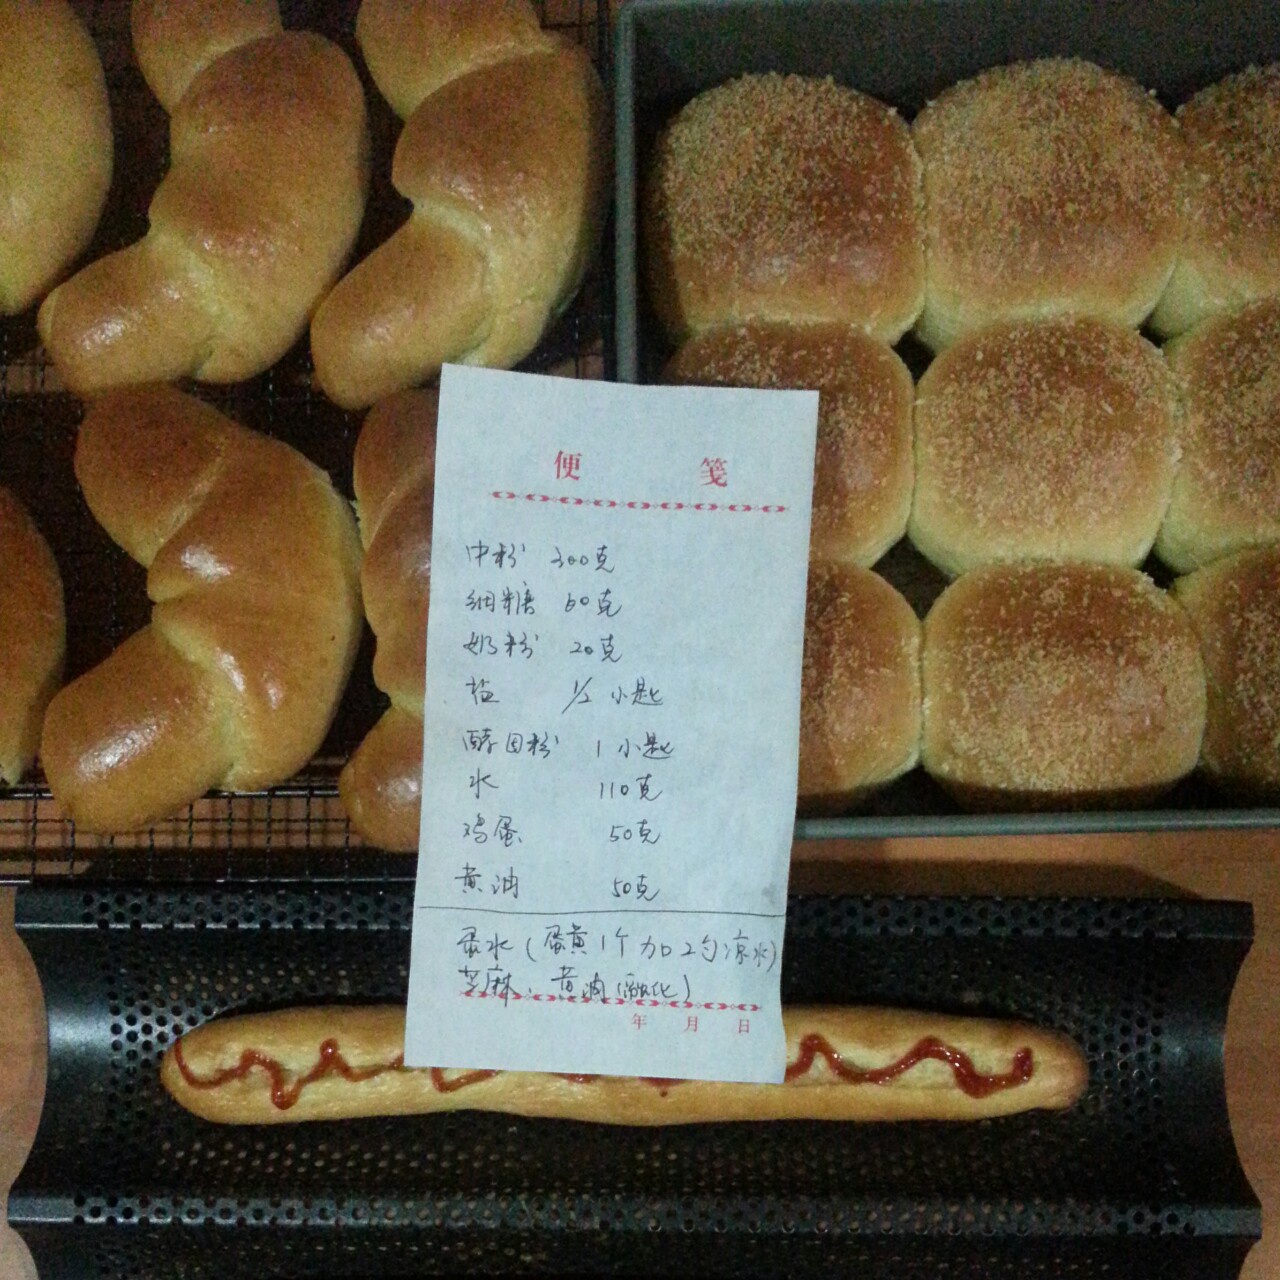 便笺
中粉 300克
细糖 60克
奶粉 20克
盐 1/2 小匙
酵母粉 1 小匙
水 110克
鸡蛋 50克
黄油 50克
蛋水(蛋黄1个加2勺凉水)
芝麻、黄油(融化)
年 月 日